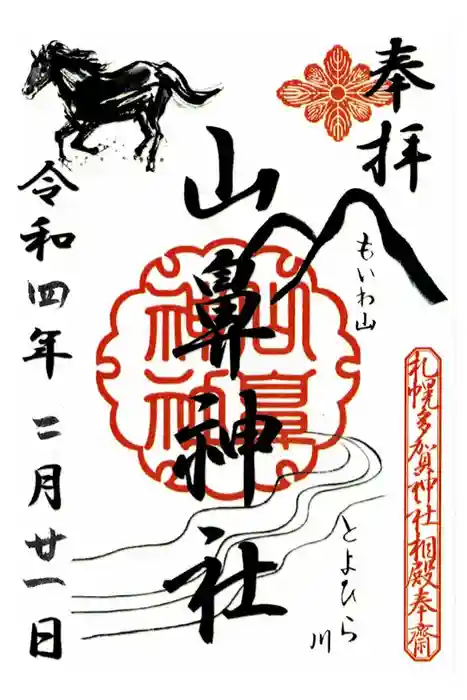 奉拝
もいわ山
札幌多賀神社相殿奉齋
山鼻神社
山鼻神社
とよひら川
令和四年二月廿一日